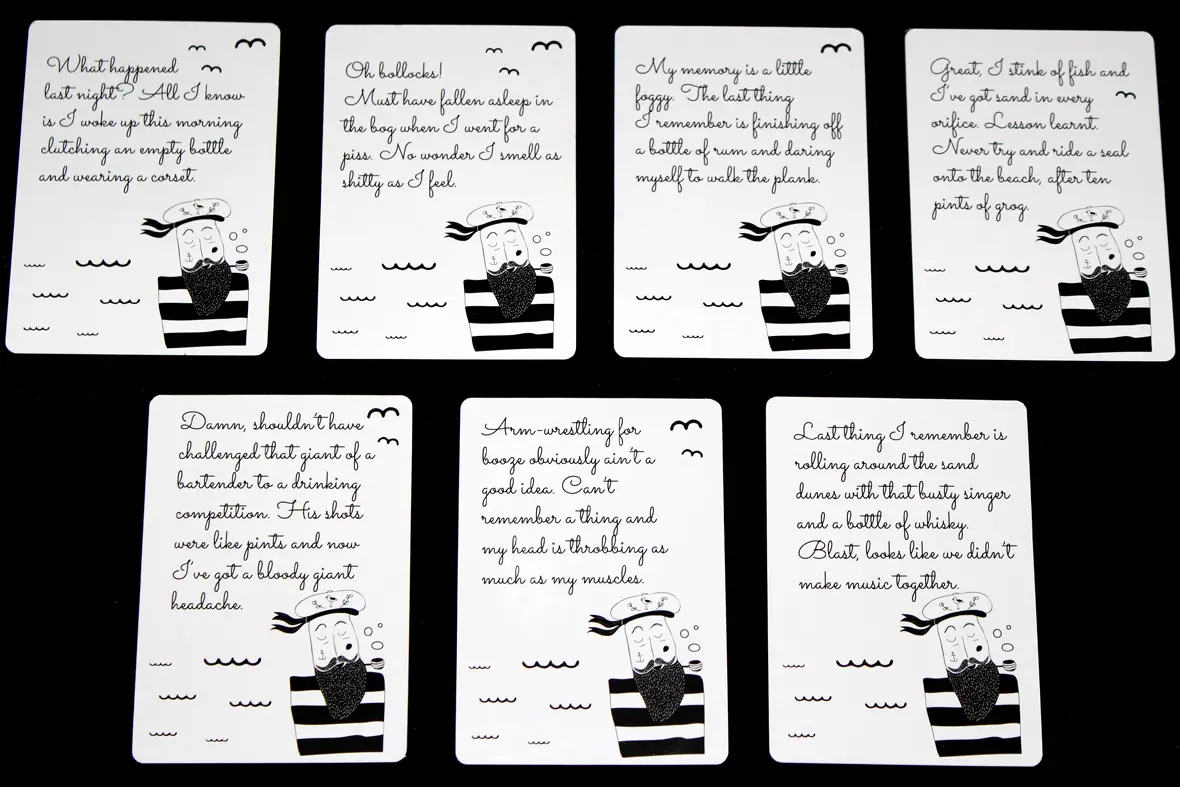 What happened
last night? All I know
is I woke up this morning
clutching an empty bottle
and wearing a corset.
Oh bollocks!
Must have fallen asleep in
the bog when I went for a
piss. No wonder I smell as
shitty as I feel.
My memory is a little
foggy. The last thing
I remember is finishing off
a bottle of rum and daring
myself to walk the plank.
Great, I stink of fish and
I've got sand in every
orifice. Lesson learnt.
Never try and ride a seal
onto the beach, after ten
pints of grog.
Damn, shouldn't have
challenged that giant of a
bartender to a drinking
competition. His shots
were like pints and now
I've got a bloody giant
headache.
Arm-wrestling for
booze obviously ain't a
good idea. Can't
remember a thing and
my head is throbbing as
much as my muscles.
Last thing I remember is
rolling around the sand
dunes with that busty singer
and a bottle of whisky.
Blast, looks like we didn't
make music together.